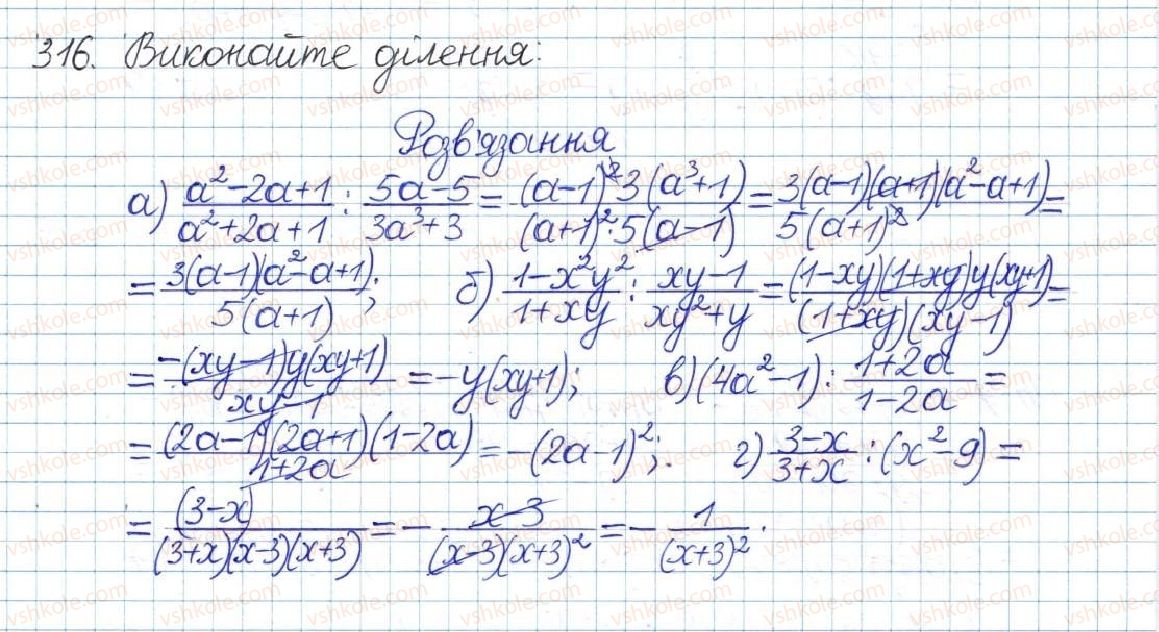 316. Виконайте ділення:
Розв'язання
а) (a²-2a+1)/(a²+2a+1) : (5a-5)/(3a³+3) = ((a-1)²·3(a³+1))/((a+1)²·5(a-1)) = (3(a-1)(a+1)(a²-a+1))/(5(a+1)²) =
= (3(a-1)(a²-a+1))/(5(a+1)); б) (1-x²y²)/(1+xy) : (xy-1)/(xy²+y) = ((1-xy)(1+xy)y(xy+1))/((1+xy)(xy-1)) =
= (-(xy-1)y(xy+1))/(xy-1) = -y(xy+1); в) (4a²-1) : (1+2a)/(1-2a) =
= ((2a-1)(2a+1)(1-2a))/(1+2a) = -(2a-1)²; г) (3-x)/(3+x) : (x²-9) =
= (3-x)/((3+x)(x-3)(x+3)) = - (x-3)/((x-3)(x+3)²) = - 1/(x+3)².